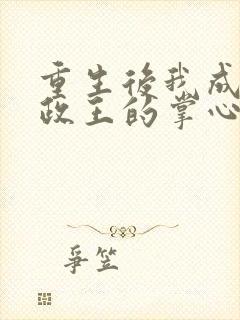 重生後我成
政王的掌心
爭笠